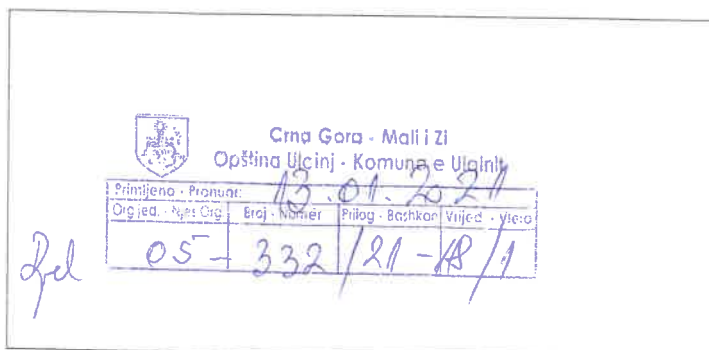 Crna Gora - Mali i Zi
Opština Ulcinj - Komuna e Ulqinit
Primljeno - Pranuar: 13.01.2021
Org.jed. - Njes.Org. Broj - Numër Prilog - Bashkan Vrijed - Vlera
05 - 332 /21 - 18/1